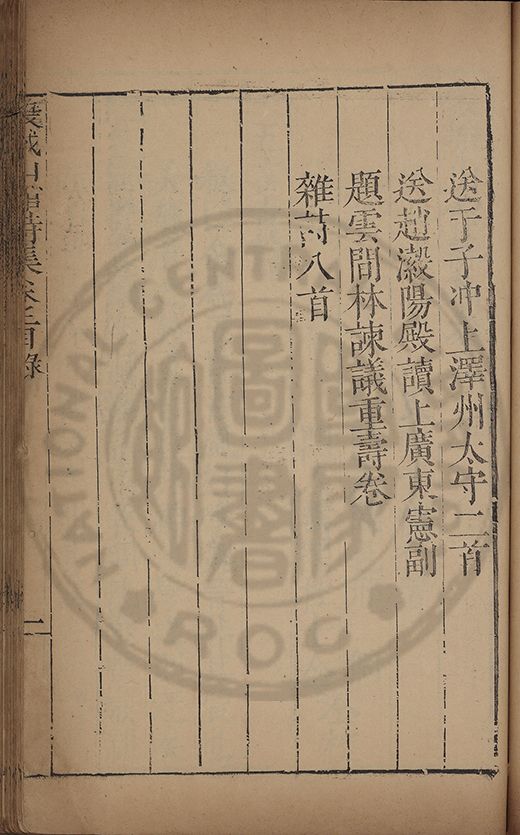 送于子冲上澤州太守二首
送趙瀔陽殿讀上廣東憲副
題雲間林諫議重壽卷
雜詩八首
詩集卷三目錄
二